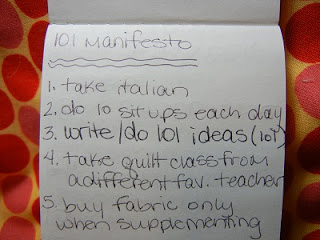 101 Manifesto
1. take italian
2. do 10 sit ups each day
3. write/do 101 ideas (10?)
4. take quilt class from
a different fav. teacher
5. buy fabric only
when supplementing